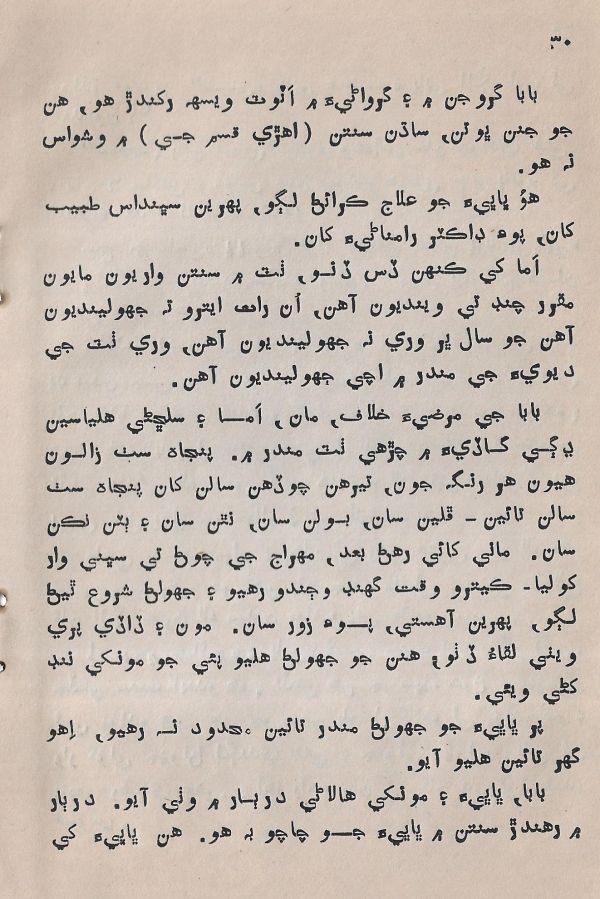 ۳۰
بابا گروجن ۾ ۽ گرواڻيءَ ۾ اَٽوٽ ويسھہ رکندڙ هو, هن
جو جنن ڀوتن, ساڌن سنتن (اهڙي قسم جي) ۾ وشواس
نہ هو.
هوُ ڀاڀيءَ جو علاج ڪرائڻ لڳو, پهرين سڀنداس طبيب
کان, پوءِ ڊاڪٽر رامناڻيءَ کان.
اَما کي ڪنهن ڏس ڏنو, ٺٽ ۾ سنتن واريون مايون
مقرر چنڊ تي وينديون آهن, اُن رات ايترو تہ جهولينديون
آهن جو سال ڀر وري نہ جهولينديون آهن, وري ٺٽ جي
ديويءَ جي مندر ۾ اچي جهولينديون آهن.
بابا جي مرضيءَ خلاف, مان, اَما ۽ سلڇڻي هلياسين
ڍڳي گاڏيءَ ۾ چڙهي ٺٽ مندر ۾. پنجاھ سٺ زالون
هيون هر رنگ جون, تيرهن چوڏهن سالن کان پنجاھ سٺ
سالن تائين – ڦلين سان, بولن سان, نٿن سان ۽ بٽن ٽڪن
سان. ماني کائي رهڻ بعد, مهراج جي چوڻ تي سڀني وار
کوليا– ڪيترو وقت گهنڊ وڄندو رهيو ۽ جهولڻ شروع ٿيڻ
لڳو, پهرين آهستي, پوءِ زور سان. مون ۽ ڏاڏي پري
ويٺي لقاءُ ڏٺو, هنن جو جهولڻ هليو پئي جو مونکي ننڊ
کڻي ويئي.
پر ڀاڀيءَ جو جهولڻ مندر تائين محدود نہ رهيو, اِهو
گهر تائين هليو آيو.
بابا, ڀاڀيءَ ۽ مونکي هالاڻي دربار ۾ وٺي آيو. دربار
۾ رهندڙ سنتن ۾ ڀاڀيءَ جو چاچو بہ هو. هن ڀاڀيءَ کي